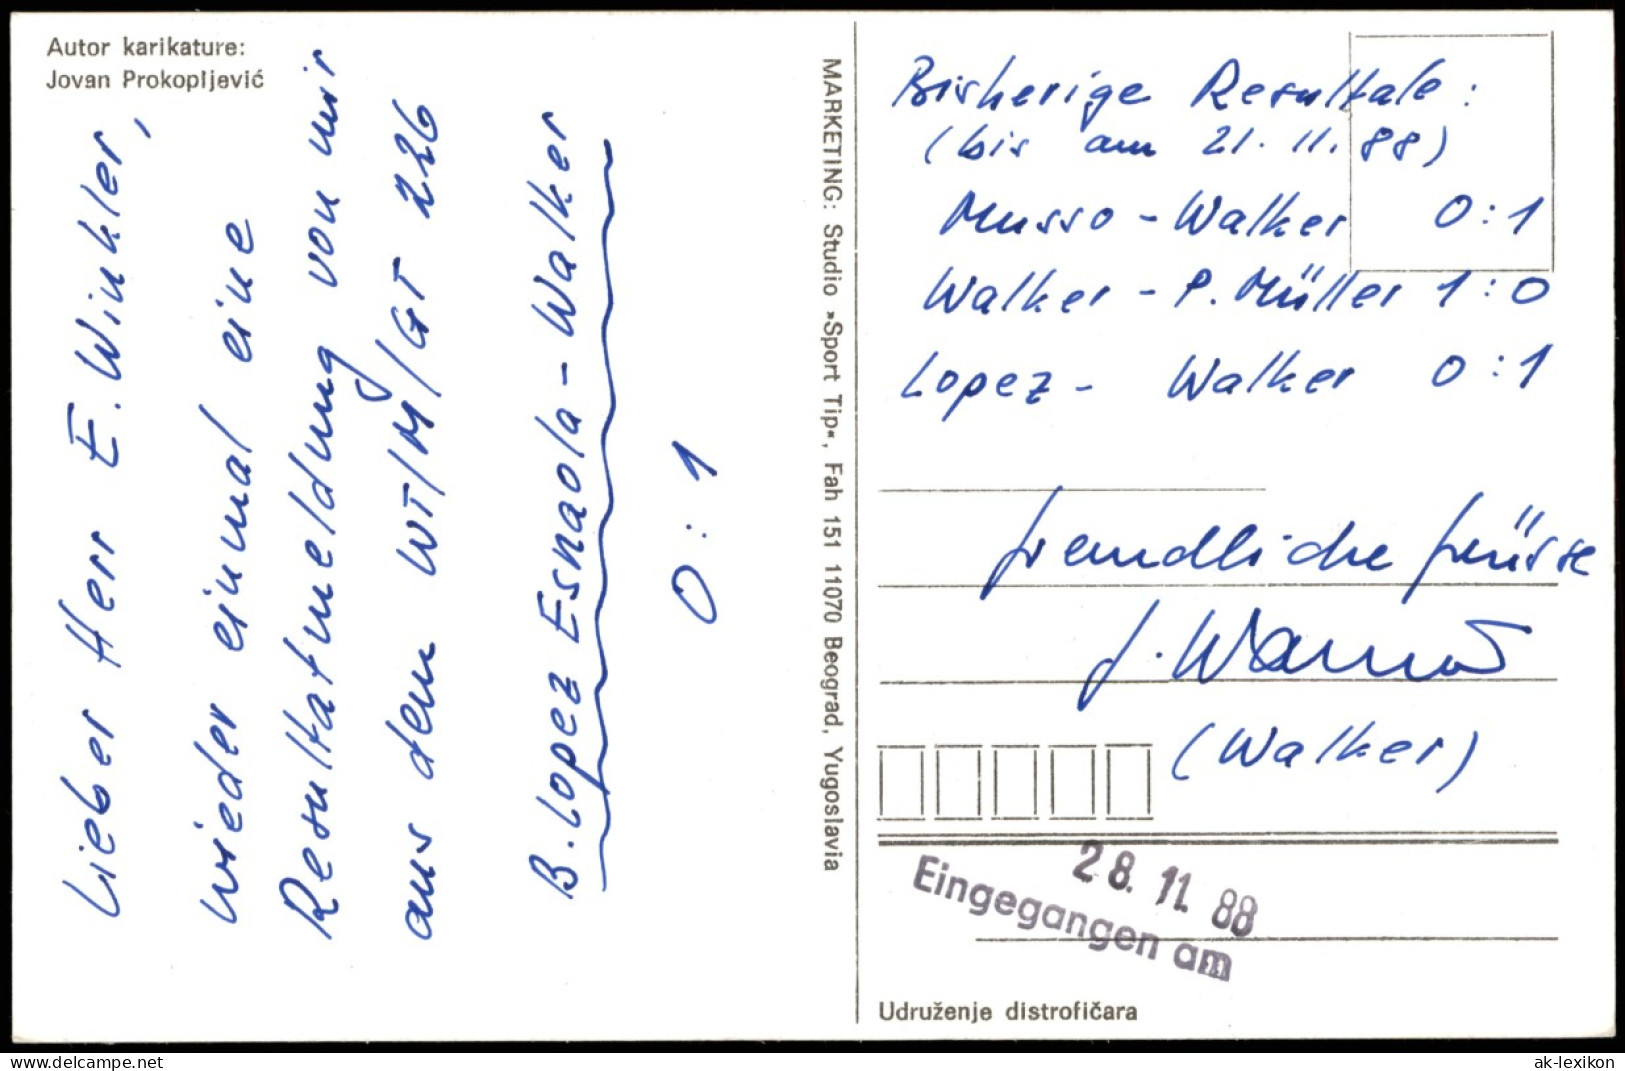 Autor karikature:
Jovan Prokopljević
Lieber Herr E. Winkler,
wieder einmal eine
Resultatmeldung von mir
aus dem WT/M/GT 226
B. Lopez Esnaola - Walker
0 : 1
MARKETING: Studio »Sport Tip«, Fah 151 11070 Beograd, Yugoslavia
Bisherige Resultate :
(bis am 21. 11. 88)
Musso - Walker 0 : 1
Walker - P. Müller 1 : 0
Lopez - Walker 0 : 1
freundliche Grüsse
J. Walker
(Walker)
28. 11. 88
Eingegangen am
Udruženje distrofičara
delcampe.net
ak-lexikon